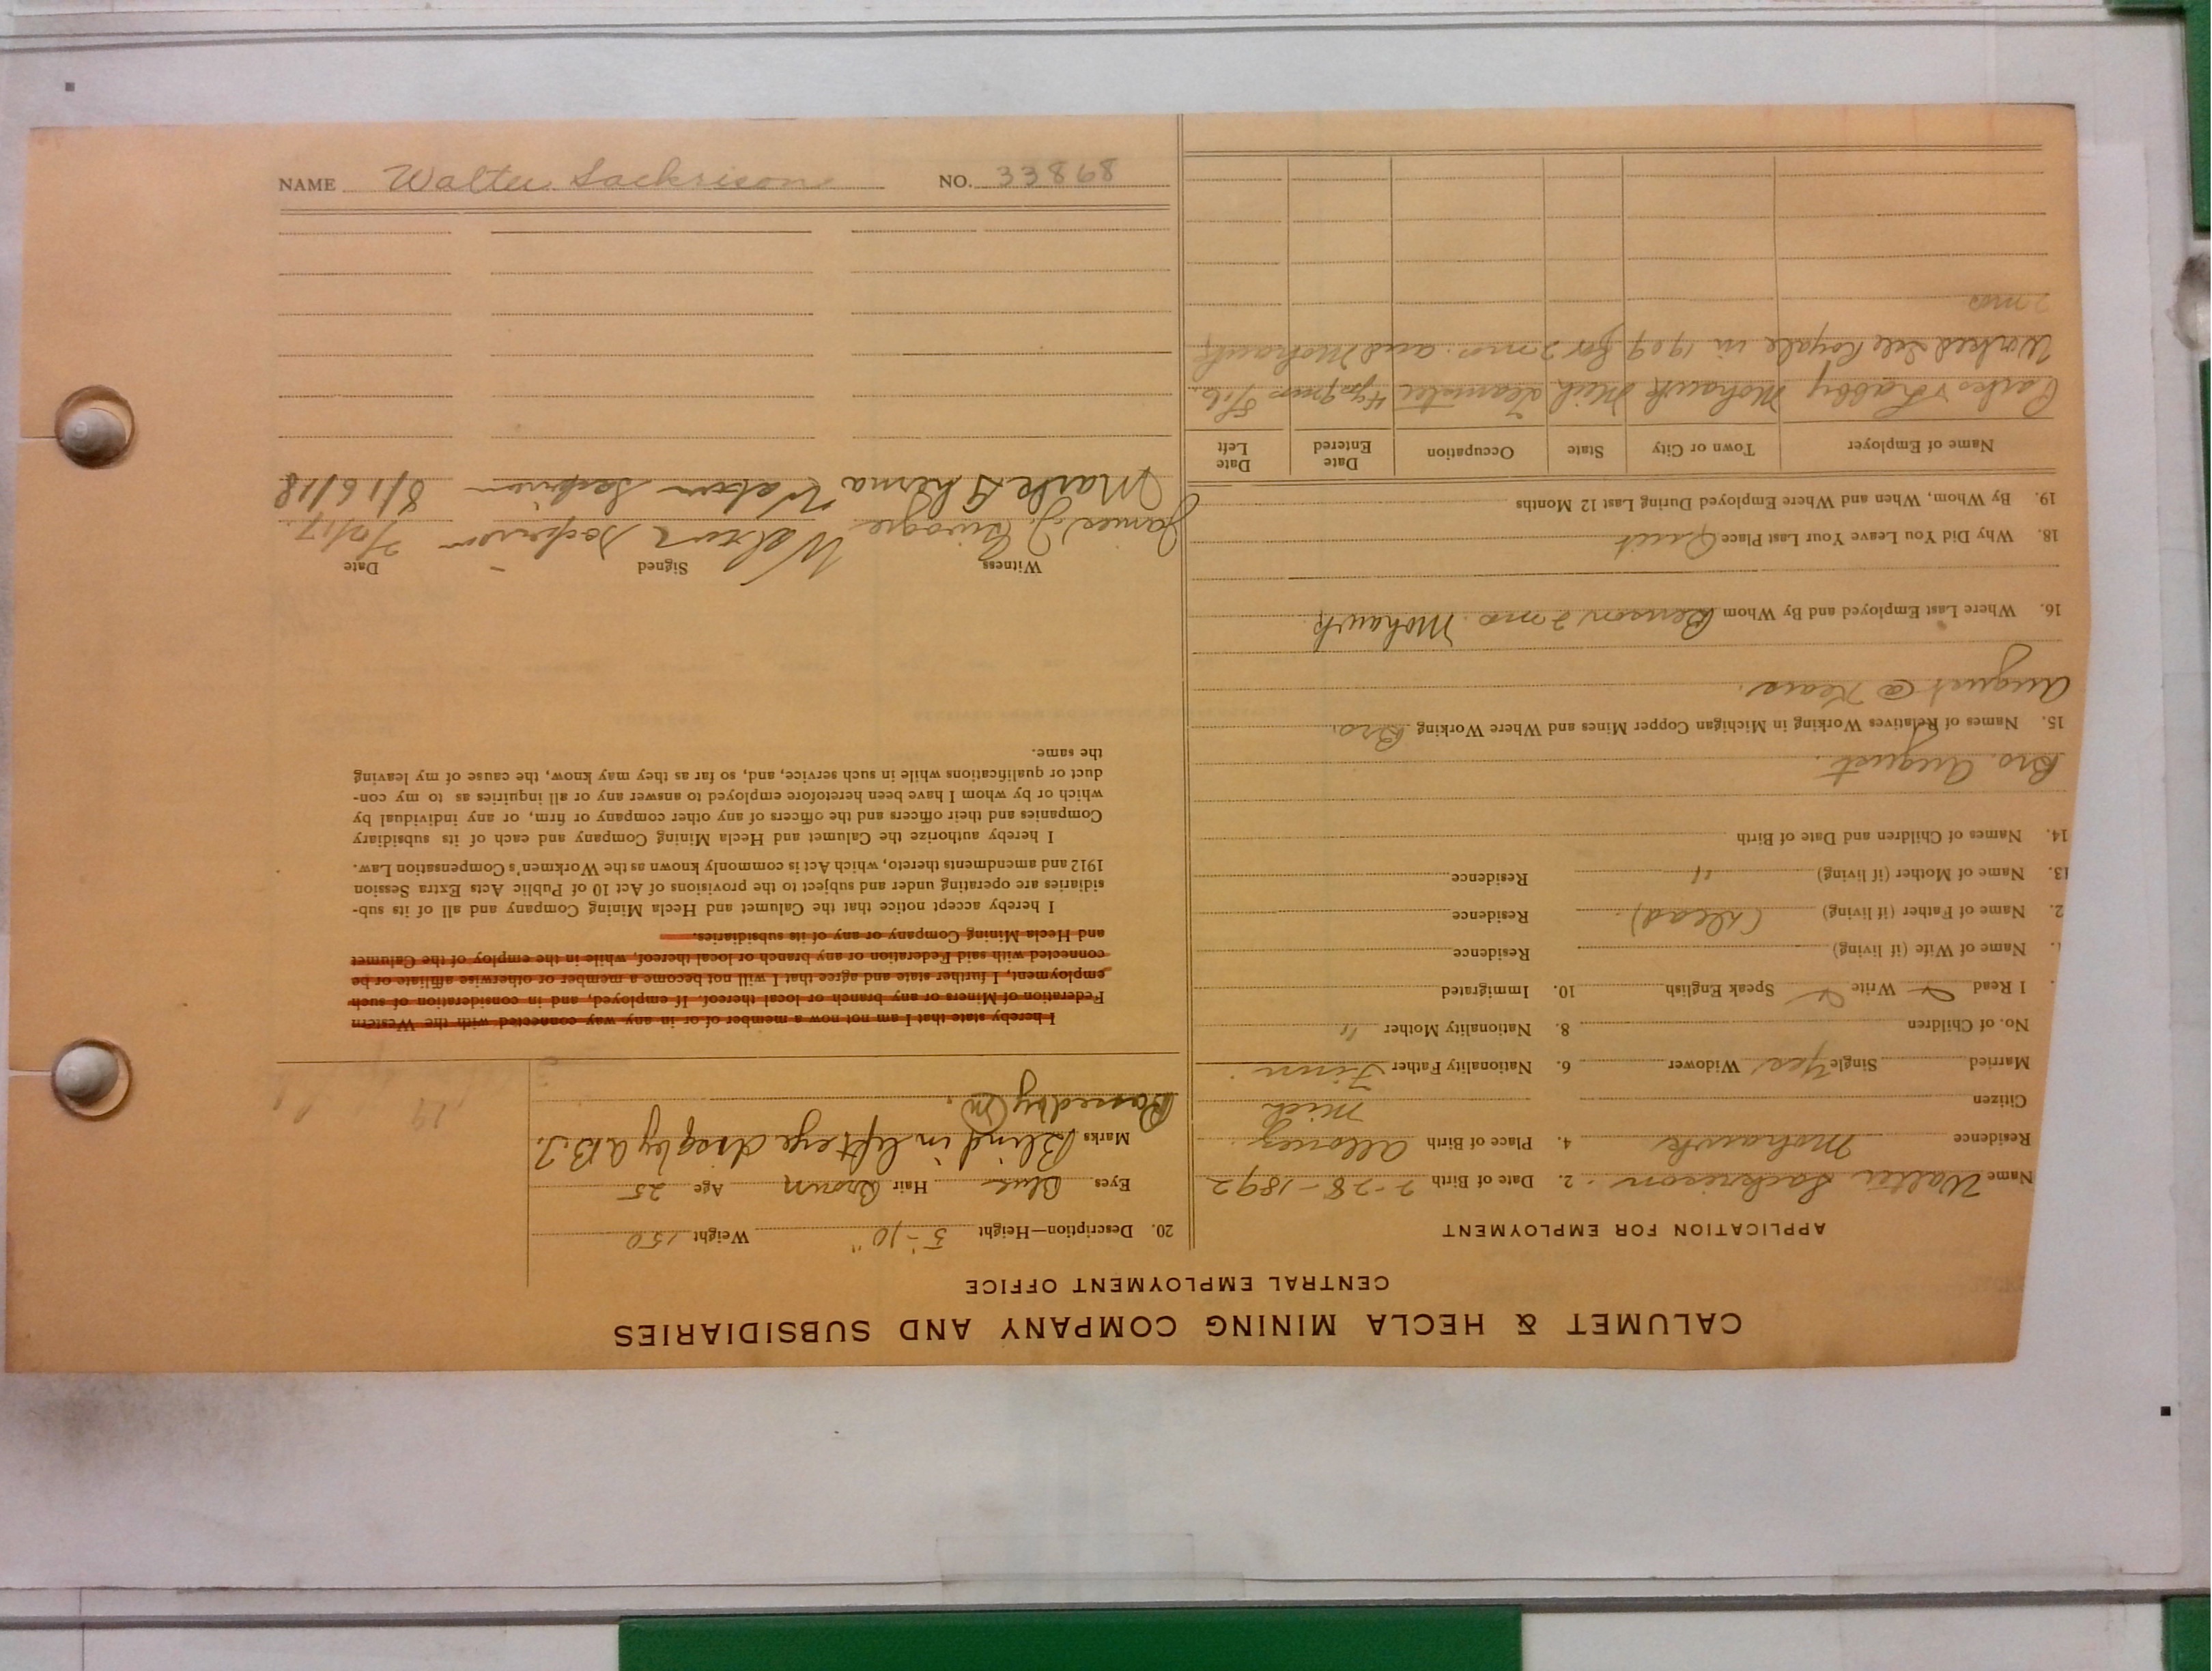 CALUMET & HECLA MINING COMPANY AND SUBSIDIARIES
CENTRAL EMPLOYMENT OFFICE
APPLICATION FOR EMPLOYMENT
Name Walter Sackrison. 2. Date of Birth 2-28-1892
Residence Mohawk 4. Place of Birth Allouez
Mich
Citizen
Married Single Yes Widower 6. Nationality Father Finn
No. of Children 8. Nationality Mother "
I Read Write Speak English 10. Immigrated
Name of Wife (if living) Residence
2. Name of Father (if living) (dead) Residence
13. Name of Mother (if living) " Residence
14. Names of Children and Date of Birth
Bro. August
15. Names of Relatives Working in Michigan Copper Mines and Where Working Bro.
August @ Kears.
16. Where Last Employed and By Whom Benson 2 mo. Mohawk
18. Why Did You Leave Your Last Place Quit
19. By Whom, When and Where Employed During Last 12 Months
Name of Employer Town or City State Occupation Date Entered Date Left
Mohawk Mich Teamster
Worked Isle Royale in 1909 for 2 mo. and Mohawk
2 mo
20. Description—Height 5'-10" Weight 150
Eyes Blue Hair Brown Age 25
Marks Blind in left eye disq by A.B.J.
Passed by M.
I hereby state that I am not now a member of or in any way connected with the Western
Federation of Miners or any branch or local thereof. If employed, and in consideration of such
employment, I further state and agree that I will not become a member or otherwise affiliate or be
connected with said Federation or any branch or local thereof, while in the employ of the Calumet
and Hecla Mining Company or any of its subsidiaries.
I hereby accept notice that the Calumet and Hecla Mining Company and all of its sub-
sidiaries are operating under and subject to the provisions of Act 10 of Public Acts Extra Session
1912 and amendments thereto, which Act is commonly known as the Workmen's Compensation Law.
I hereby authorize the Calumet and Hecla Mining Company and each of its subsidiary
Companies and their officers and the officers of any other company or firm, or any individual by
which or by whom I have been heretofore employed to answer any or all inquiries as to my con-
duct or qualifications while in such service, and, so far as they may know, the cause of my leaving
the same.
Witness Signed Date
James J.
8/16/18
NAME Walter Sackrison NO. 33868